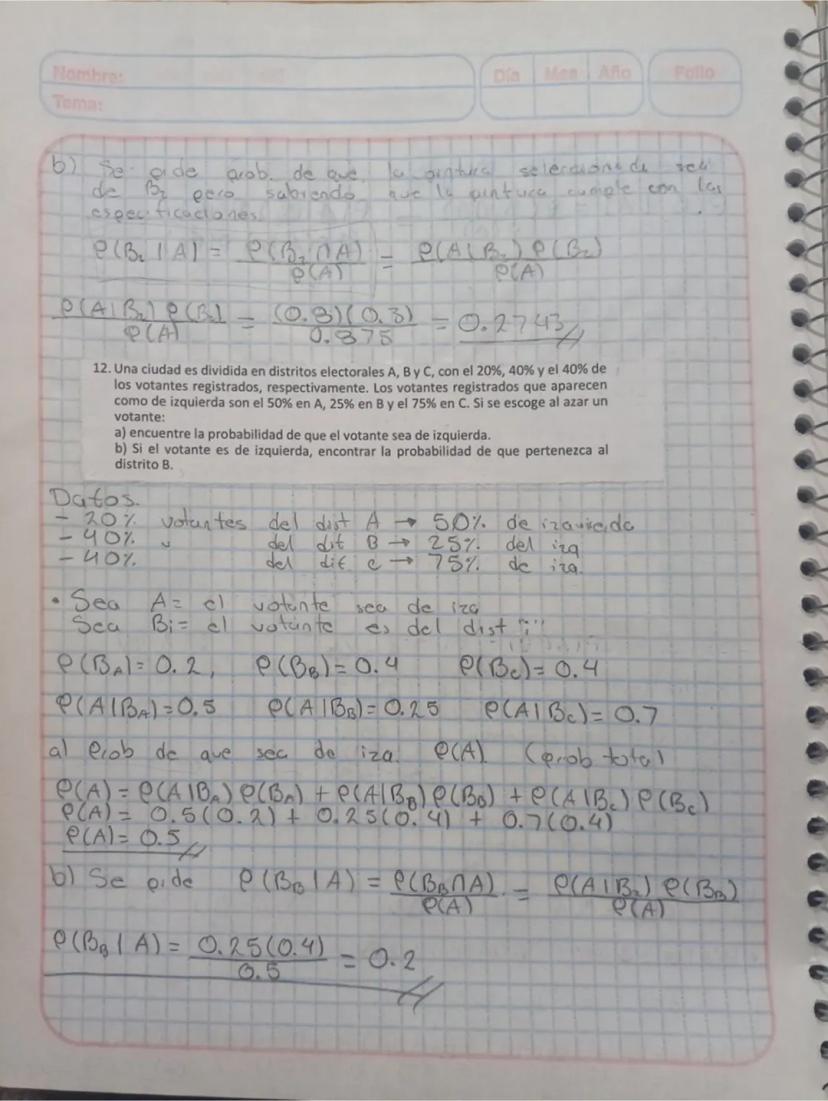 Nombre:
Día Mes Año
Folio
Tema:
b) Se pide prob. de que la pintura seleccionada sea
de B₂ pero sabiendo que la pintura cumple con las
especificaciones.
P(B₂ | A) = P(B₂ ∩ A) / P(A) = P(A | B₂) P(B₂) / P(A)
P(A | B₂) P(B₂) / P(A) = (0.8)(0.3) / 0.875 = 0.2743
12. Una ciudad es dividida en distritos electorales A, B y C, con el 20%, 40% y el 40% de
los votantes registrados, respectivamente. Los votantes registrados que aparecen
como de izquierda son el 50% en A, 25% en B y el 75% en C. Si se escoge al azar un
votante:
a) encuentre la probabilidad de que el votante sea de izquierda.
b) Si el votante es de izquierda, encontrar la probabilidad de que pertenezca al
distrito B.
Datos.
- 20% votantes del dist A → 50% de izquierda
- 40% " del dit B → 25% del izq
- 40% del dit C → 75% de izq.
• Sea A = el votante sea de izq
Sea Bi = el votante es del dist "i"
P(B_A) = 0.2, P(B_B) = 0.4 P(B_C) = 0.4
P(A | B_A) = 0.5 P(A | B_B) = 0.25 P(A | B_C) = 0.7
a) Prob de que sea de izq. P(A) (prob total)
P(A) = P(A | B_A) P(B_A) + P(A | B_B) P(B_B) + P(A | B_C) P(B_C)
P(A) = 0.5(0.2) + 0.25(0.4) + 0.7(0.4)
P(A) = 0.5
b) Se pide P(B_B | A) = P(B_B ∩ A) / P(A) = P(A | B_B) P(B_B) / P(A)
P(B_B | A) = 0.25(0.4) / 0.5 = 0.2